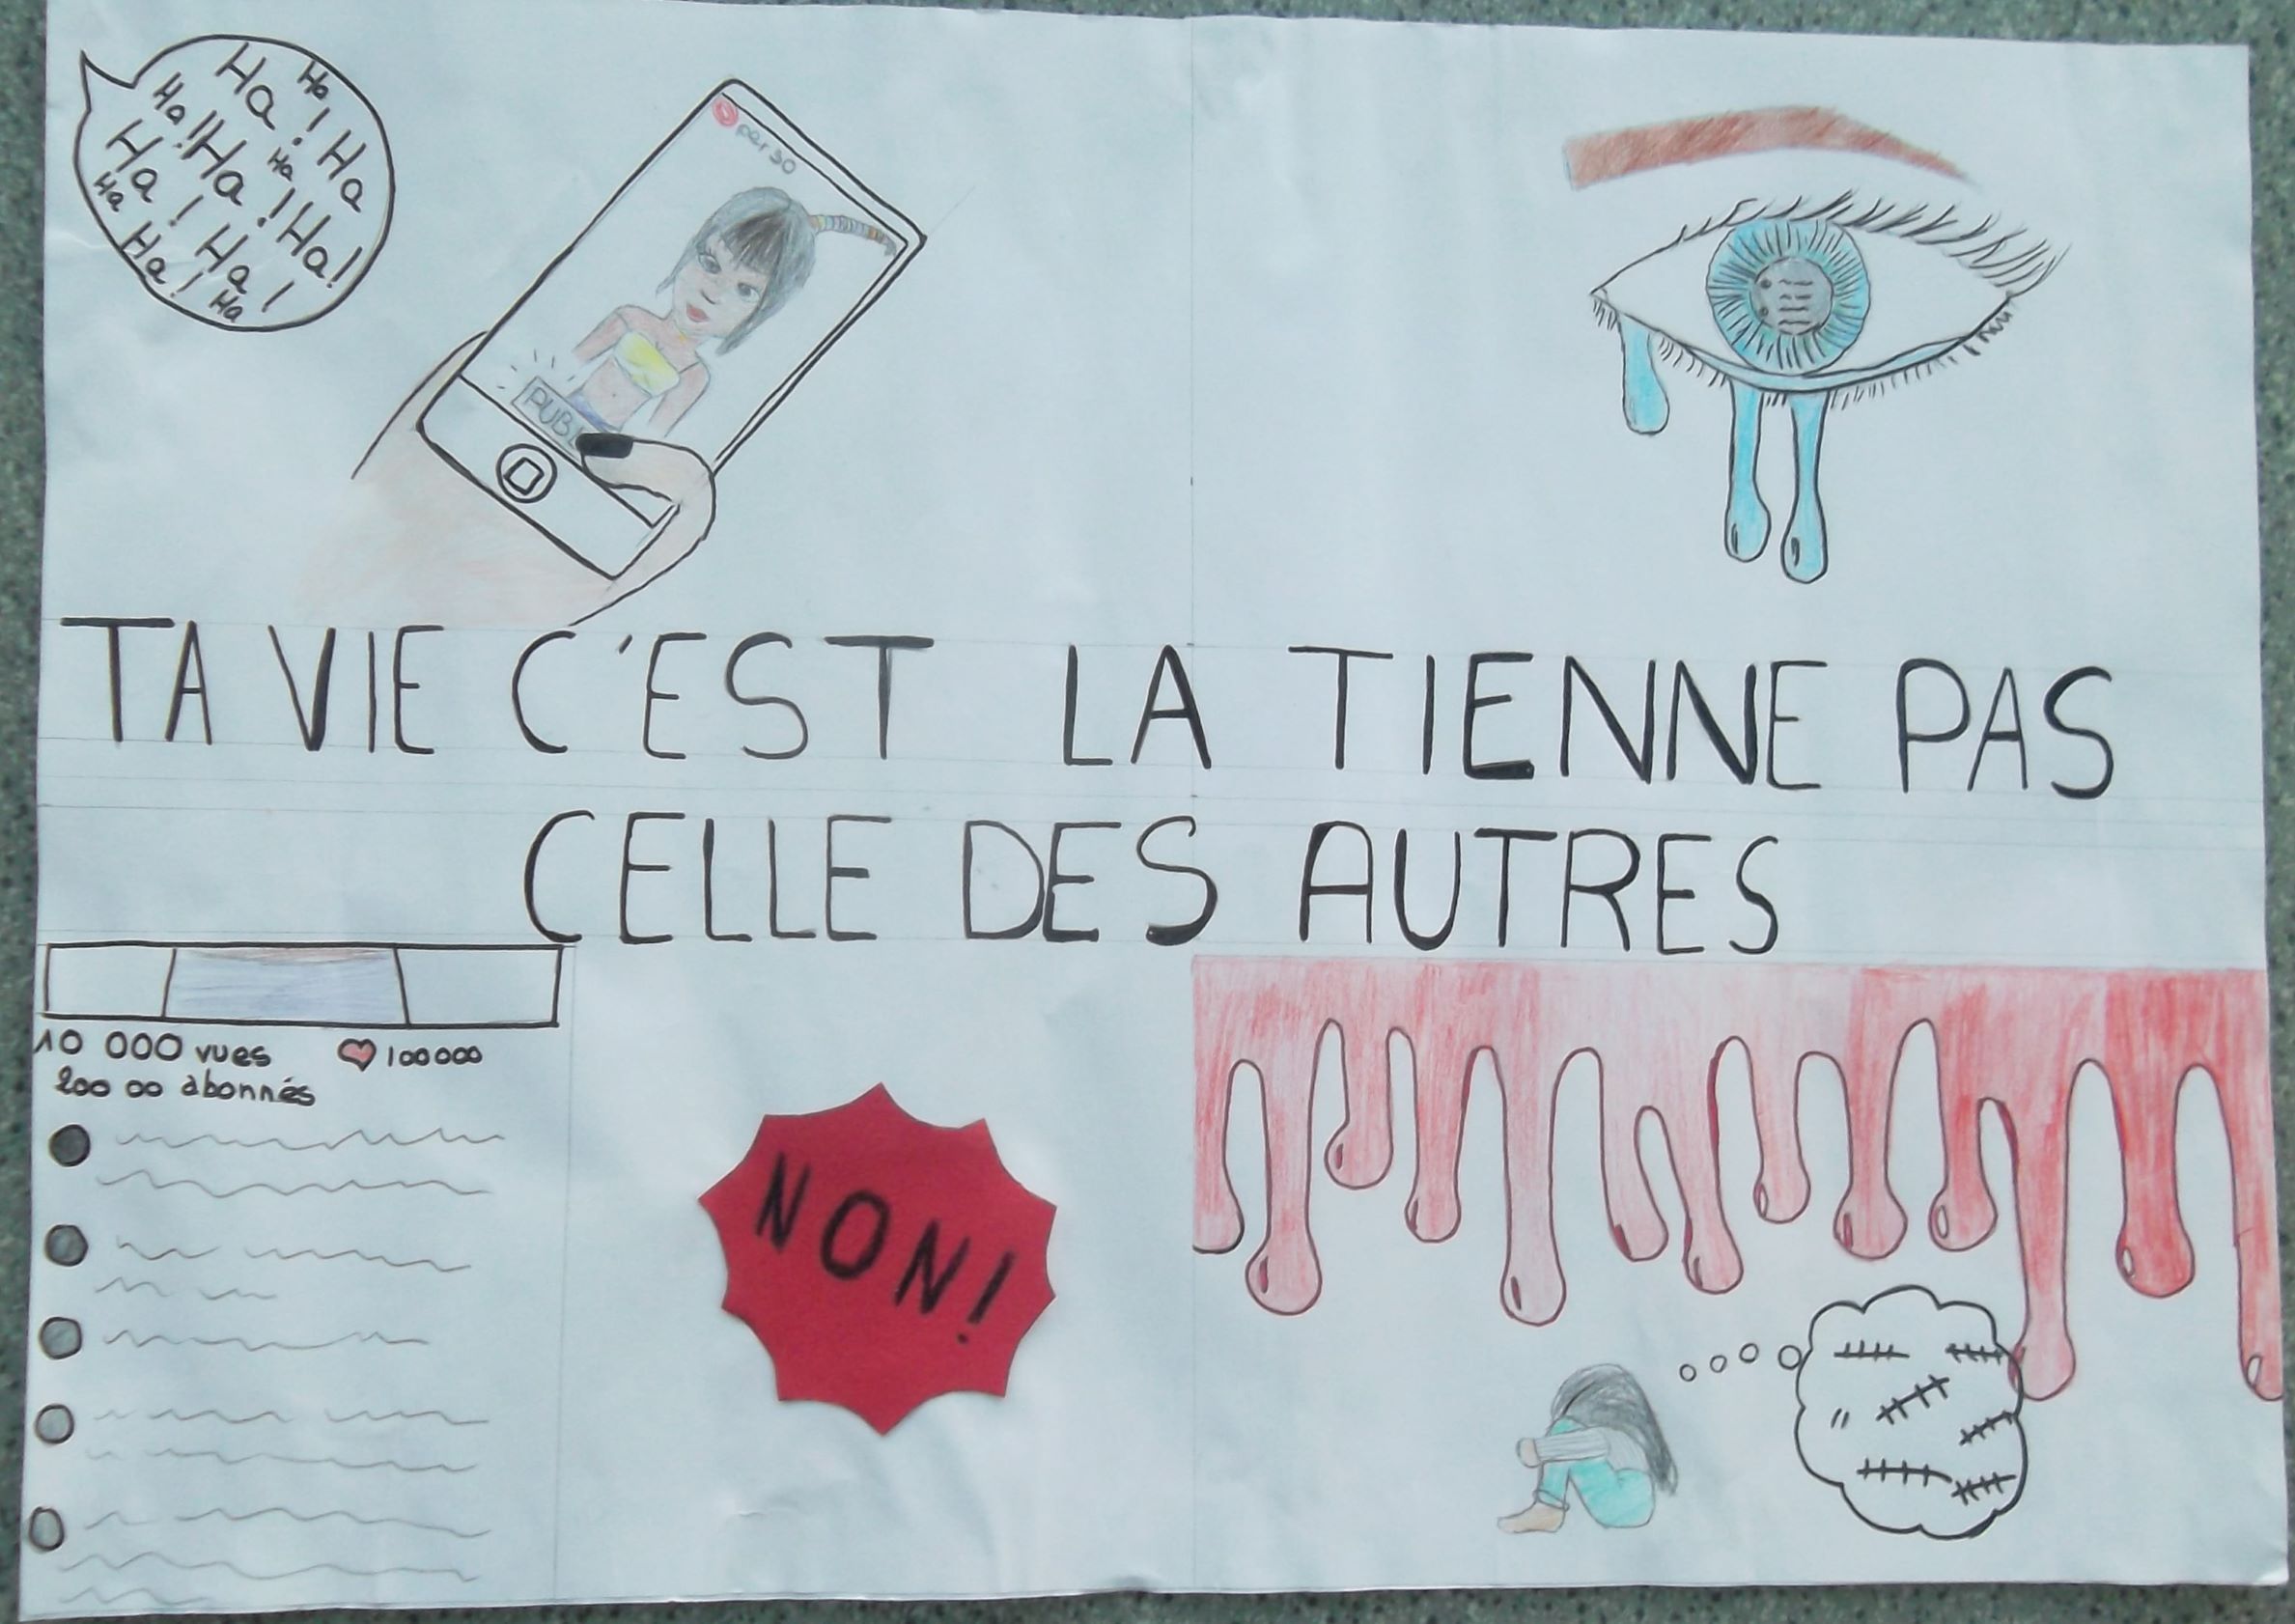 Ha! Ha! Ha
Ha! Ha! Ha Ha!
Ha! Ha!
Ha Ha! Ha
perso
PUBL
TA VIE C'EST LA TIENNE PAS
CELLE DES AUTRES
10 000 vues ❤ 100000
200 00 abonnés
NON!